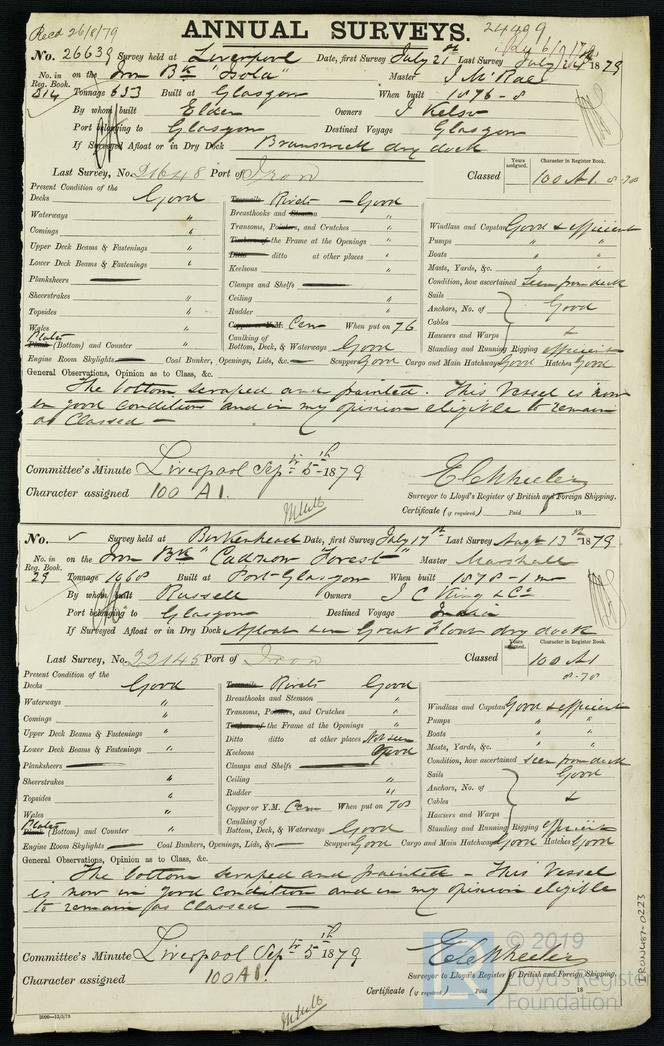 Recd 26/8/79
ANNUAL SURVEYS.
24999
No. 26639 Survey held at Liverpool Date, first Survey July 21st Last Survey July 24th 1879
No. in Reg. Book. 314 on the Iron Bk "Isola" Master J McRae
Tonnage 653 Built at Glasgow When built 1876-8
By whom built Elder Owners J Kelso
Port belonging to Glasgow Destined Voyage Glasgow
If Surveyed Afloat or in Dry Dock Brunswick dry dock
Last Survey, No. 21648 Port of Iron Classed Years assigned. Character in Register Book. 100 A1. 8-78
Present Condition of the
Decks Good Treenails Rivets - Good
Waterways " Breasthooks and Stemson "
Comings " Transoms, Pointers, and Crutches " Windlass and Capstan Good & efficient
Upper Deck Beams & Fastenings " Timbers of the Frame at the Openings " Pumps " "
Lower Deck Beams & Fastenings " Ditto ditto at other places " Boats " "
Planksheers Keelsons " Masts, Yards, &c. " "
Sheerstrakes " Clamps and Shelfs Condition, how ascertained Seen from deck
Topsides " Ceiling " Sails
Wales " Rudder " Anchors, No. of Good
Plates Plank (Bottom) and Counter " Copper or Y.M. Cem When put on 76 Cables &
Caulking of Bottom, Deck, & Waterways Good Hausers and Warps
Standing and Running Rigging efficient
Engine Room Skylights Coal Bunker, Openings, Lids, &c. Scuppers Good Cargo and Main Hatchways Good Hatches Good
General Observations, Opinion as to Class, &c.
The bottom scraped and painted. This Vessel is now
in good condition and in my opinion eligible to remain
as Classed -
Committee's Minute Liverpool Sepr 5th 1879
Character assigned 100 A1.
E C Wheeler
Surveyor to Lloyd's Register of British and Foreign Shipping.
Certificate (if required) Paid 18
No. Survey held at Birkenhead Date, first Survey July 17th Last Survey Augt 13th 1879
No. in Reg. Book. 29 on the Iron Bk "Cadzow Forest" Master Marshall
Tonnage 1068 Built at Port-Glasgow When built 1878-1 mo
By whom built Russell Owners J C King & Co
Port belonging to Glasgow Destined Voyage India
If Surveyed Afloat or in Dry Dock Afloat & in Great Float dry dock
Last Survey, No. 22145 Port of Iron Classed Years assigned. Character in Register Book. 100 A1 8-78
Present Condition of the
Decks Good Treenails Rivets Good
Waterways " Breasthooks and Stemson "
Comings " Transoms, Pointers, and Crutches " Windlass and Capstan Good & efficient
Upper Deck Beams & Fastenings " Timbers of the Frame at the Openings " Pumps " "
Lower Deck Beams & Fastenings " Ditto ditto at other places Not seen Boats " "
Planksheers Keelsons Good Masts, Yards, &c. " "
Sheerstrakes " Clamps and Shelfs Condition, how ascertained Seen from deck
Topsides " Ceiling " Sails Good
Wales " Rudder " Anchors, No. of
Plates Plank (Bottom) and Counter " Copper or Y.M. Cem When put on 78 Cables &
Caulking of Bottom, Deck, & Waterways Good Hausers and Warps
Standing and Running Rigging efficient
Engine Room Skylights Coal Bunkers, Openings, Lids, &c Scuppers Good Cargo and Main Hatchways Good Hatches Good
General Observations, Opinion as to Class, &c.
The bottom scraped and painted - This Vessel
is now in good condition and in my opinion eligible
to remain as Classed -
Committee's Minute Liverpool Sepr 5th 1879
Character assigned 100 A1.
E C Wheeler
Surveyor to Lloyd's Register of British and Foreign Shipping.
Certificate (if required) Paid 18
IRON487-0223
© 2019
Lloyd's Register
Foundation